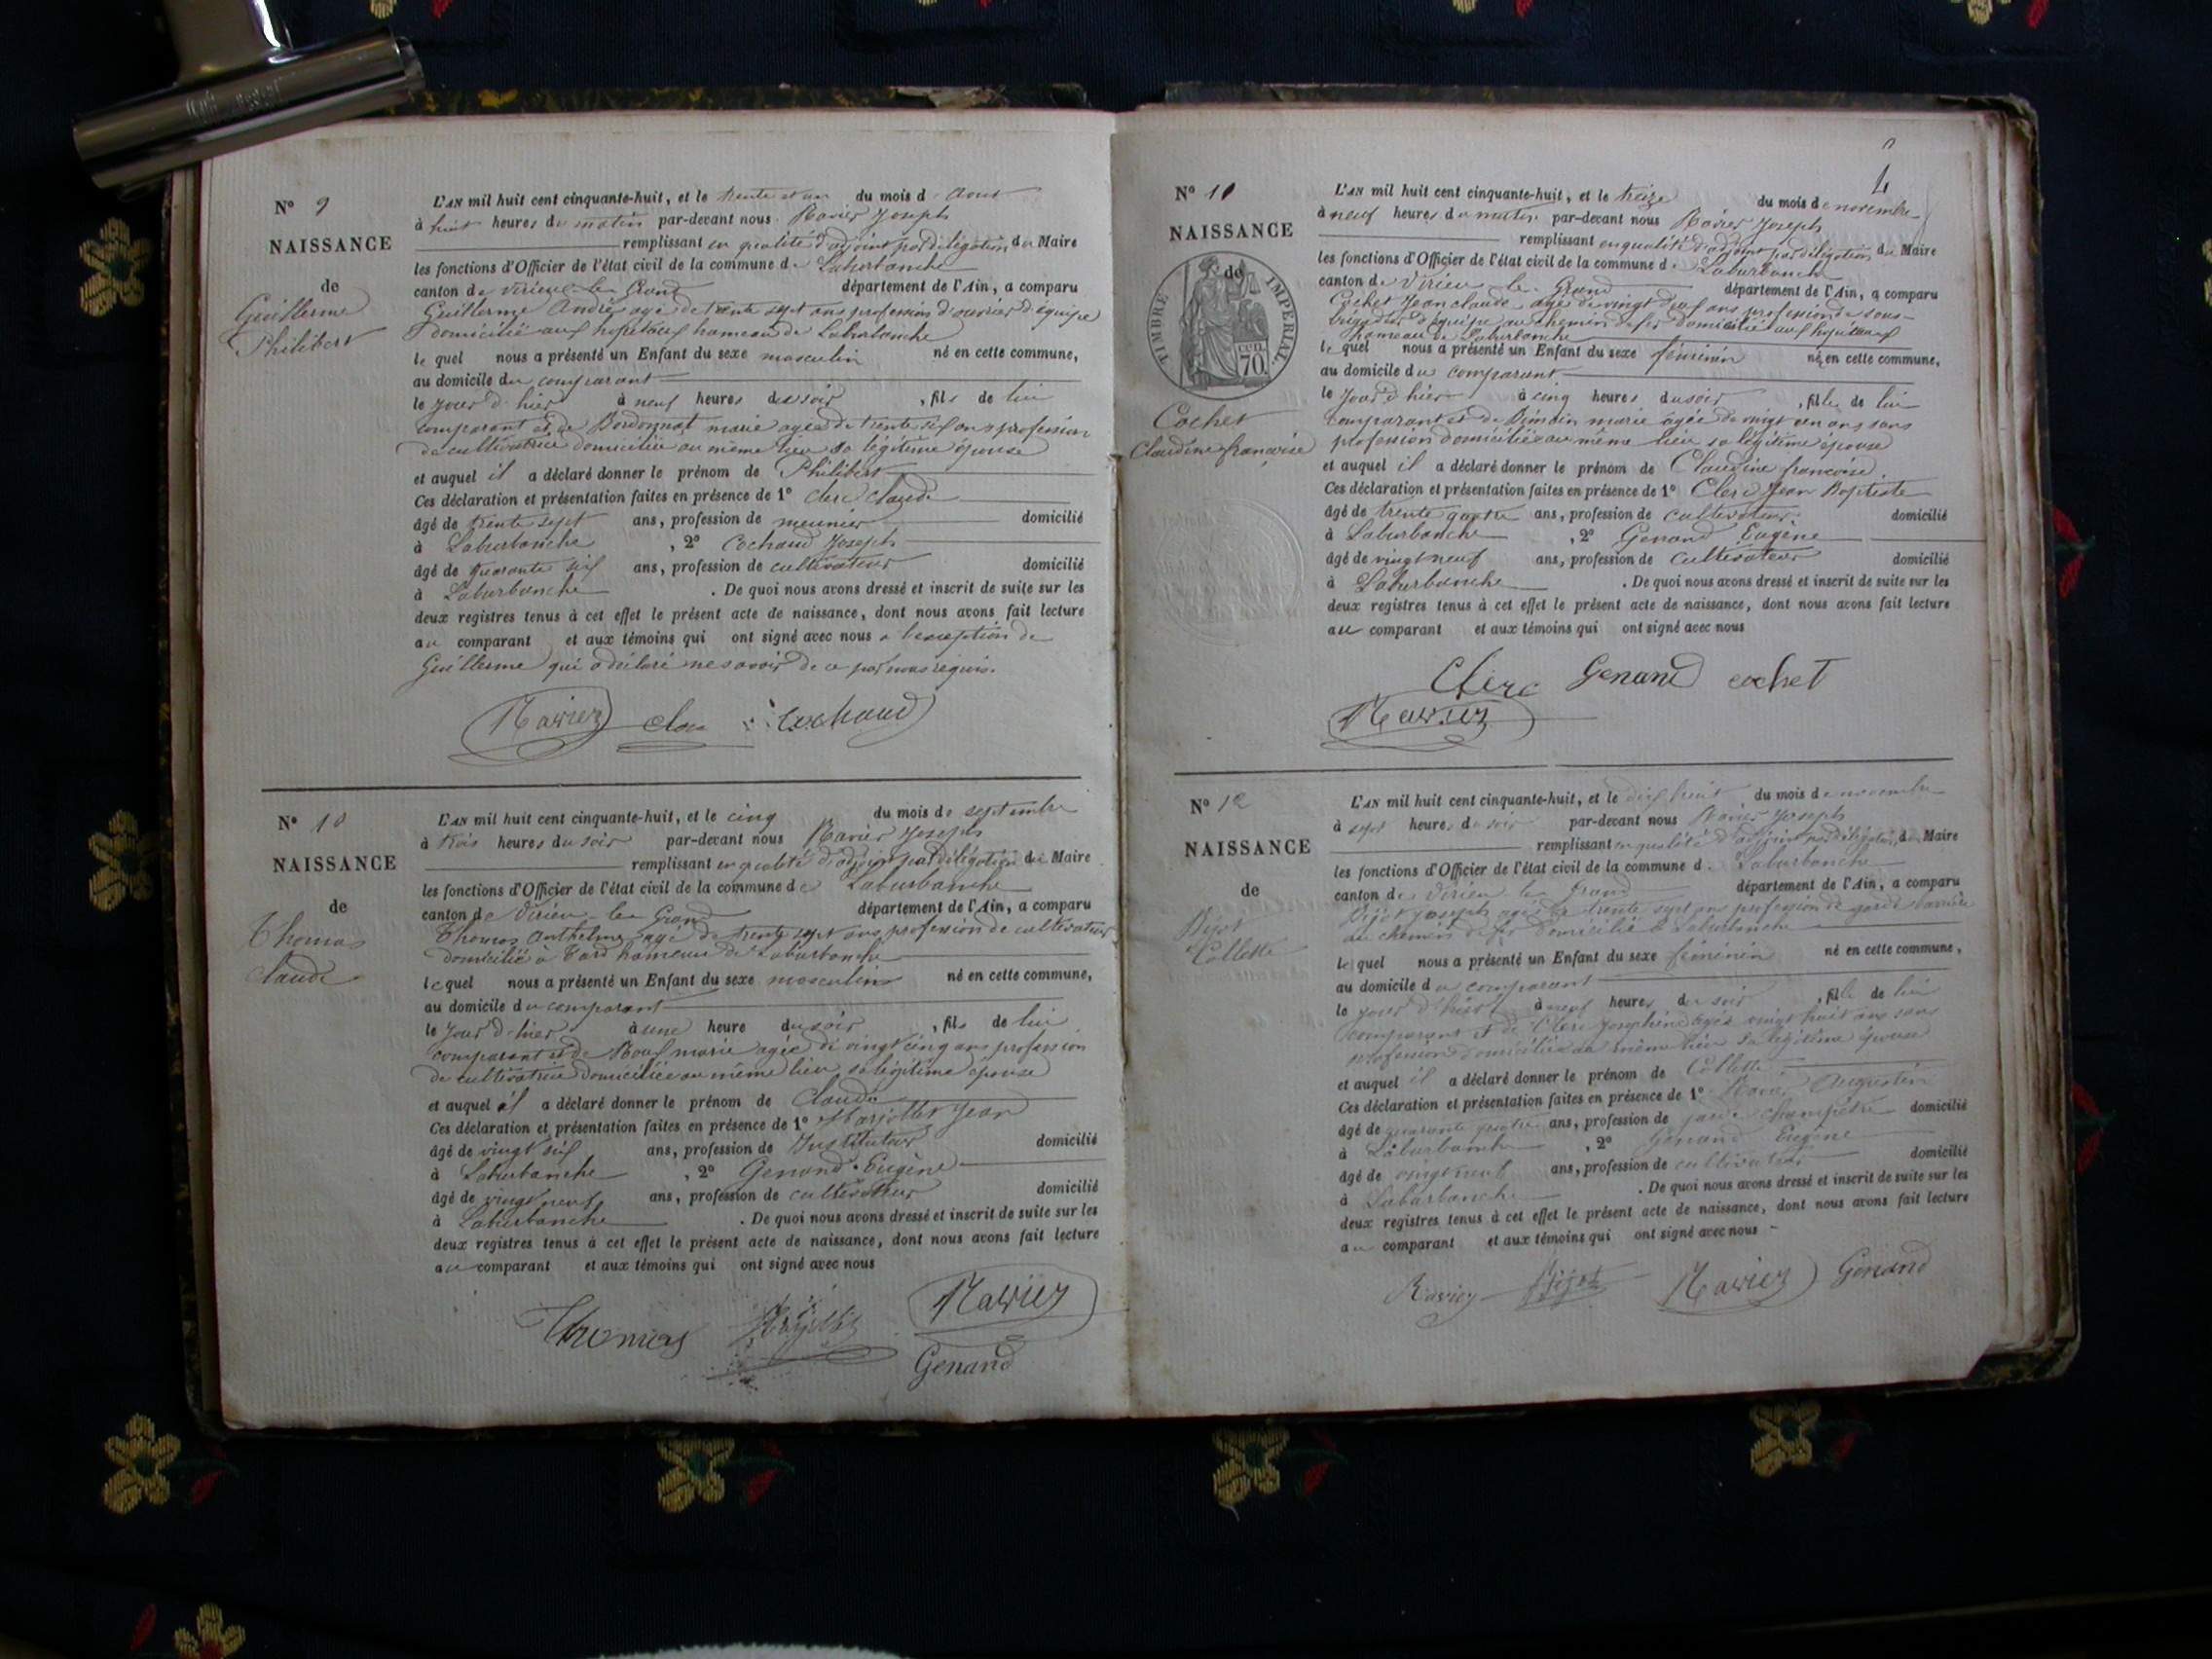 N° 9
NAISSANCE
de
Guillerme
Philibert
L'AN mil huit cent cinquante-huit, et le trente et un du mois d'Aout
à huit heures du matin par-devant nous Ravier Joseph
remplissant en qualité d'adjoint par délégation du Maire
les fonctions d'Officier de l'état civil de la commune de Laburbanche
canton de Virieu le Grand département de l'Ain, a comparu
Guillerme André agé de trente sept ans profession d'ouvrier d'équipe
domicilié aux hopitaux hameau de Laburbanche
le quel nous a présenté un Enfant du sexe masculin né en cette commune,
au domicile du comparant
le jour d'hier à neuf heures du soir, fils de lui
comparant et de Bordonnat marie agée de trente six ans profession
de cultivatrice domiciliée au même lieu sa légitime épouse
et auquel il a déclaré donner le prénom de Philibert
Ces déclaration et présentation faites en présence de 1° Clerc Claude
âgé de trente sept ans, profession de meunier domicilié
à Laburbanche, 2° Cochaud Joseph
âgé de quarante six ans, profession de cultivateur domicilié
à Laburbanche. De quoi nous avons dressé et inscrit de suite sur les
deux registres tenus à cet effet le présent acte de naissance, dont nous avons fait lecture
au comparant et aux témoins qui ont signé avec nous a l'exception de
Guillerme qui a déclaré ne savoir de ce par nous réquis.
Ravier clerc Cochaud
N° 10
NAISSANCE
de
Thomas
Claude
L'AN mil huit cent cinquante-huit, et le cinq du mois de septembre
à trois heures du soir par-devant nous Ravier Joseph
remplissant en qualité d'adjoint par délégation du Maire
les fonctions d'Officier de l'état civil de la commune de Laburbanche
canton de Virieu le Grand département de l'Ain, a comparu
Thomas Anthelme agé de trente sept ans profession de cultivateur
domicilié à hameau de Laburbanche
lequel nous a présenté un Enfant du sexe masculin né en cette commune,
au domicile du comparant
le jour d'hier à une heure du soir, fils de lui
comparant et de Roux marie agée de vingt cinq ans profession
de cultivatrice domiciliée au même lieu sa légitime épouse
et auquel il a déclaré donner le prénom de Claude
Ces déclaration et présentation faites en présence de 1° Marjollet Jean
âgé de vingt six ans, profession de Instituteur domicilié
à Laburbanche, 2° Genand Eugène
âgé de vingt neuf ans, profession de cultivateur domicilié
à Laburbanche. De quoi nous avons dressé et inscrit de suite sur les
deux registres tenus à cet effet le présent acte de naissance, dont nous avons fait lecture
au comparant et aux témoins qui ont signé avec nous
Thomas Marjollet Ravier
Genand
4
N° 11
NAISSANCE
de
TIMBRE IMPERIAL
70 cen.
Cochet
Claudine françoise
L'AN mil huit cent cinquante-huit, et le treize du mois de novembre
à neuf heures du matin par-devant nous Ravier Joseph
remplissant en qualité d'adjoint par délégation du Maire
les fonctions d'Officier de l'état civil de la commune de Laburbanche
canton de Virieu le Grand département de l'Ain, a comparu
Cochet Jean claude agé de vingt ans profession de sous-
brigadier d'équipe au chemin de fer domicilié aux hopitaux
hameau de Laburbanche
le quel nous a présenté un Enfant du sexe féminin né en cette commune,
au domicile du comparant
le jour d'hier à cinq heures du soir, fille de lui
comparant et de marie agée de vingt un ans sans
profession domiciliée au même lieu sa légitime épouse
et auquel il a déclaré donner le prénom de Claudine françoise
Ces déclaration et présentation faites en présence de 1° Clerc Jean Baptiste
âgé de trente quatre ans, profession de cultivateur domicilié
à Laburbanche, 2° Genand Eugène
âgé de vingt neuf ans, profession de cultivateur domicilié
à Laburbanche. De quoi nous avons dressé et inscrit de suite sur les
deux registres tenus à cet effet le présent acte de naissance, dont nous avons fait lecture
au comparant et aux témoins qui ont signé avec nous
Clerc Genand cochet
Ravier
N° 12
NAISSANCE
de
Bijot
Collette
L'AN mil huit cent cinquante-huit, et le dix huit du mois de novembre
à sept heures du soir par-devant nous Ravier Joseph
remplissant en qualité d'adjoint par délégation du Maire
les fonctions d'Officier de l'état civil de la commune de Laburbanche
canton de Virieu le Grand département de l'Ain, a comparu
Bijot Joseph agé de trente sept ans profession de garde barrière
au chemin de fer domicilié à Laburbanche
le quel nous a présenté un Enfant du sexe féminin né en cette commune,
au domicile du comparant
le jour d'hier à neuf heures du soir, fille de lui
comparant et de Clerc Josephine agée vingt huit ans sans
profession domiciliée au même lieu sa légitime épouse
et auquel il a déclaré donner le prénom de Collette
Ces déclaration et présentation faites en présence de 1° Ravier Augustin
âgé de quarante quatre ans, profession de garde champêtre domicilié
à Laburbanche, 2° Genand Eugène
âgé de vingt neuf ans, profession de cultivateur domicilié
à Laburbanche. De quoi nous avons dressé et inscrit de suite sur les
deux registres tenus à cet effet le présent acte de naissance, dont nous avons fait lecture
au comparant et aux témoins qui ont signé avec nous
Ravier Bijot Ravier Genand